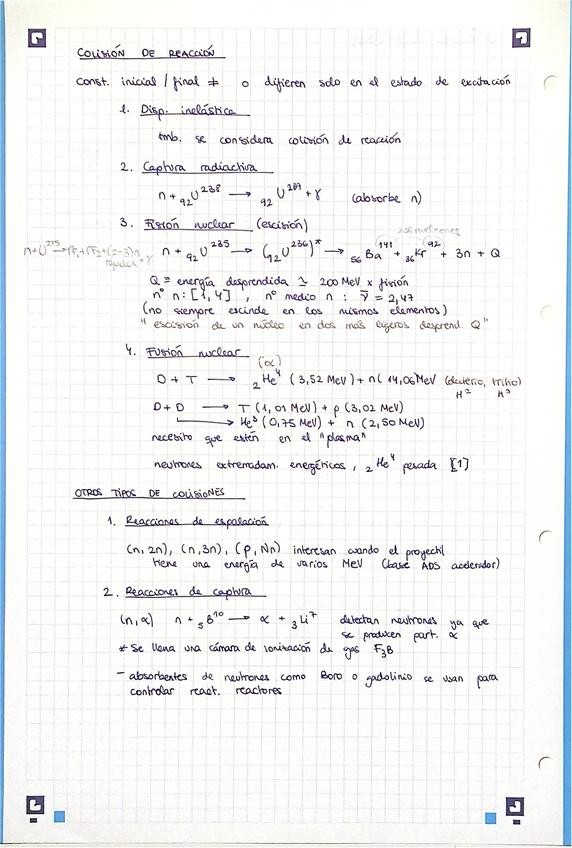 COLISIÓN DE REACCIÓN
Const. inicial / final ≠ o difieren solo en el estado de excitación
1. Disp. inelástica
tmb. se considera colisión de reacción
2. Captura radiactiva
n + ₉₂U²³⁸ → ₉₂U²³⁹ + γ (absorbe n)
3. Fisión nuclear (escisión)
n + ₉₂U²³⁵ → (₉₂U²³⁶)* → ₅₆Ba¹⁴¹ + ₃₆Kr⁹² + 3n + Q
Q = energía desprendida ≃ 200 MeV x fisión
nº n: [1, 4] , nº medio n : ν̄ = 2,47
(no siempre escinde en los mismos elementos)
" escisión de un núcleo en dos más ligeros desprend. Q "
4. Fusión nuclear
(α)
D + T → ₂He⁴ (3,52 MeV) + n ( 14,06 MeV (deuterio, tritio)
H² H³
D + D → T (1,01 MeV) + p (3,02 MeV)
→ He³ (0,75 MeV) + n (2,50 MeV)
necesito que estén en el "plasma"
neutrones extremadam. energéticos , ₂He⁴ pesada [1]
OTROS TIPOS DE COLISIONES
1. Reacciones de espalación
(n, 2n), (n, 3n), (p, Nn) interesan cuando el proyectil
tiene una energía de varios MeV (base ADS acelerador)
2. Reacciones de captura
(n, α) n + ₅B¹⁰ → α + ₃Li⁷ detectan neutrones ya que
se producen part. α
* Se llena una cámara de ionización de gas F₃B
- absorbentes de neutrones como Boro o gadolinio se usan para
controlar react. reactores